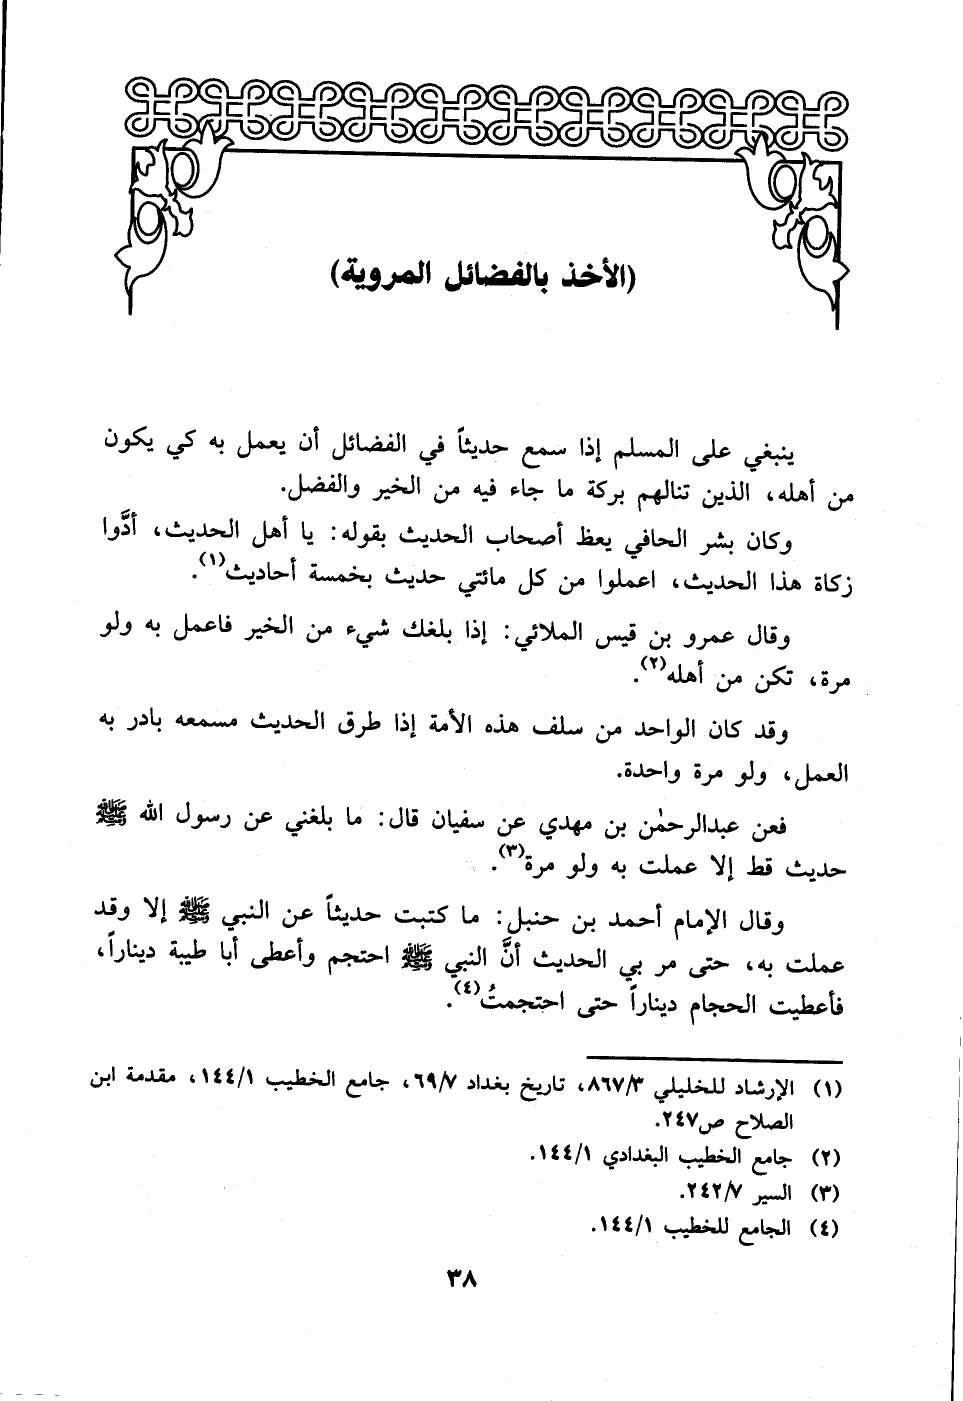 (الأخذ بالفضائل المروية)
ينبغي على المسلم إذا سمع حديثاً في الفضائل أن يعمل به كي يكون
من أهله، الذين تنالهم بركة ما جاء فيه من الخير والفضل.
وكان بشر الحافي يعظ أصحاب الحديث بقوله: يا أهل الحديث، أدَّوا
زكاة هذا الحديث، اعملوا من كل مائتي حديث بخمسة أحاديث(١).
وقال عمرو بن قيس الملائي: إذا بلغك شيء من الخير فاعمل به ولو
مرة، تكن من أهله(٢).
وقد كان الواحد من سلف هذه الأمة إذا طرق الحديث مسمعه بادر به
العمل، ولو مرة واحدة.
فعن عبدالرحمٰن بن مهدي عن سفيان قال: ما بلغني عن رسول الله ﷺ
حديث قط إلا عملت به ولو مرة(٣).
وقال الإمام أحمد بن حنبل: ما كتبت حديثاً عن النبي ﷺ إلا وقد
عملت به، حتى مر بي الحديث أنَّ النبي ﷺ احتجم وأعطى أبا طيبة ديناراً،
فأعطيت الحجام ديناراً حتى احتجمتُ(٤).
(١) الإرشاد للخليلي ٨٦٧/٣، تاريخ بغداد ٦٩/٧، جامع الخطيب ١٤٤/١، مقدمة ابن
الصلاح ص٢٤٧.
(٢) جامع الخطيب البغدادي ١٤٤/١.
(٣) السير ٢٤٢/٧.
(٤) الجامع للخطيب ١٤٤/١.
٣٨